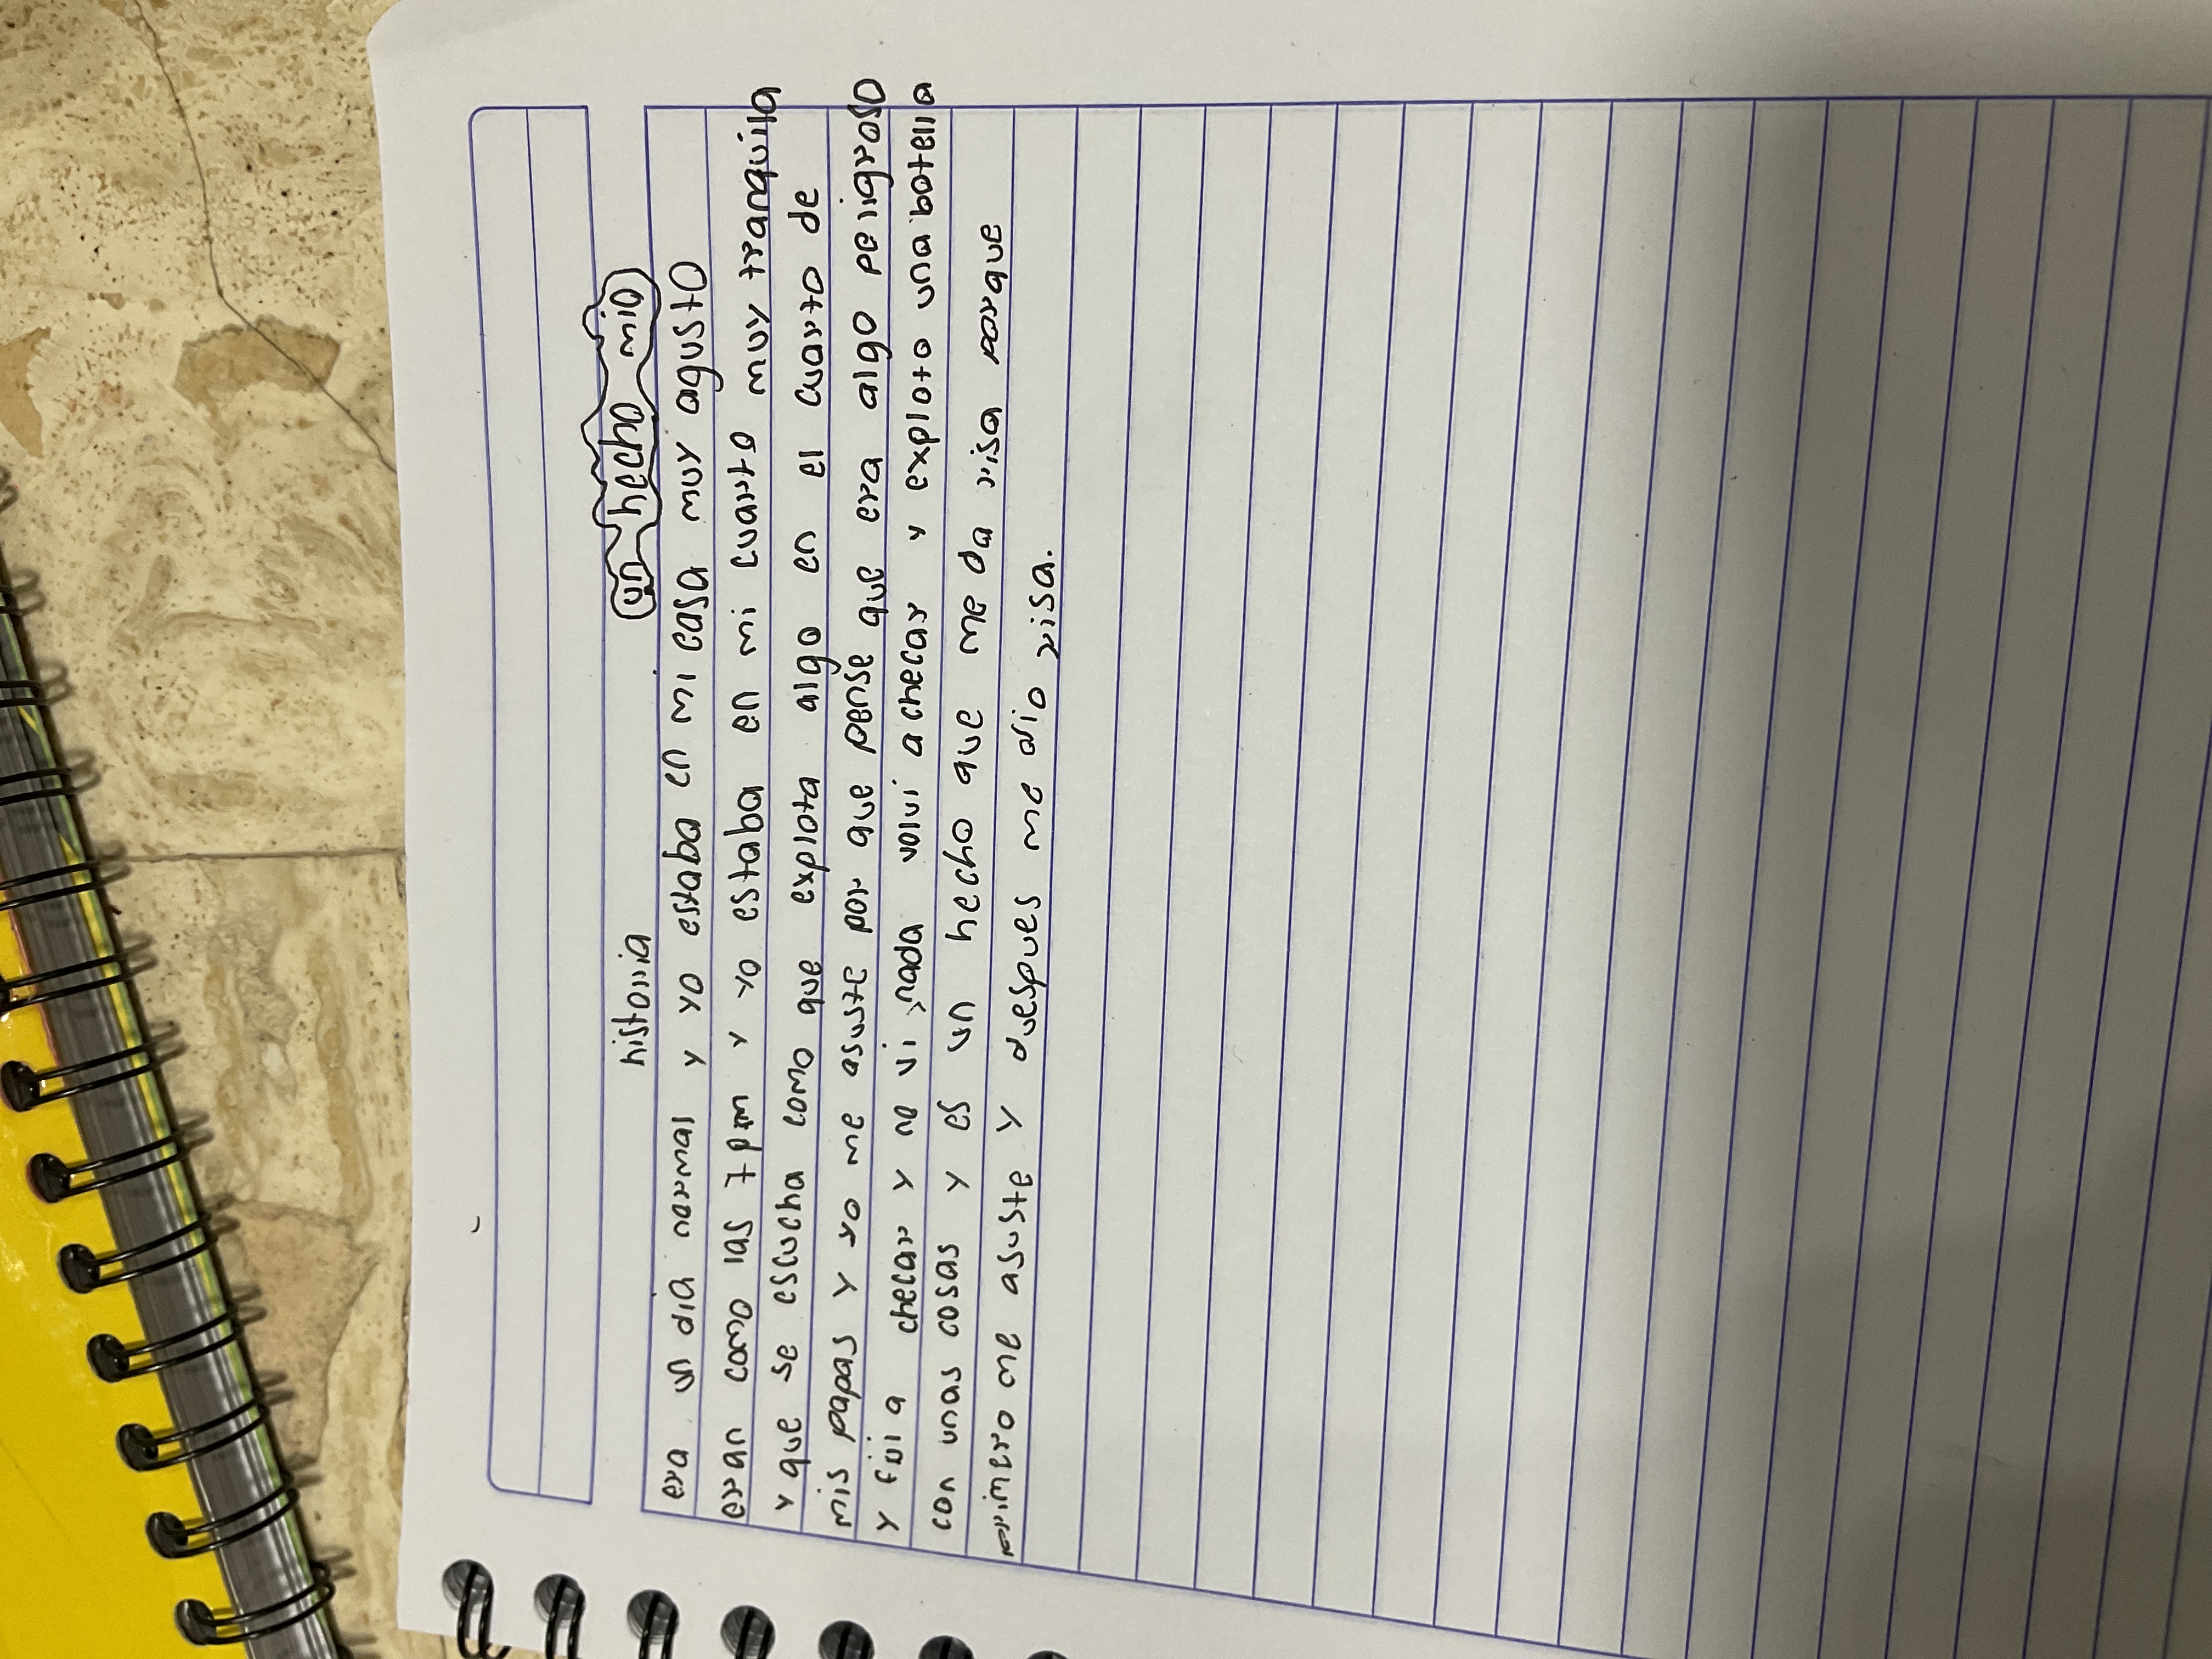 historia un hecho mio
era un dia normal y yo estaba en mi casa muy agusto
eran como las 7 pm y yo estaba en mi cuarto muy tranquila
y que se escucha como que explota algo en el cuarto de
mis papas y yo me asuste por que pense que era algo peligroso
y fui a checar y no vi nada volvi a checar y exploto una botella
con unas cosas y es un hecho que me da risa porque
primero me asuste y despues me dio risa.